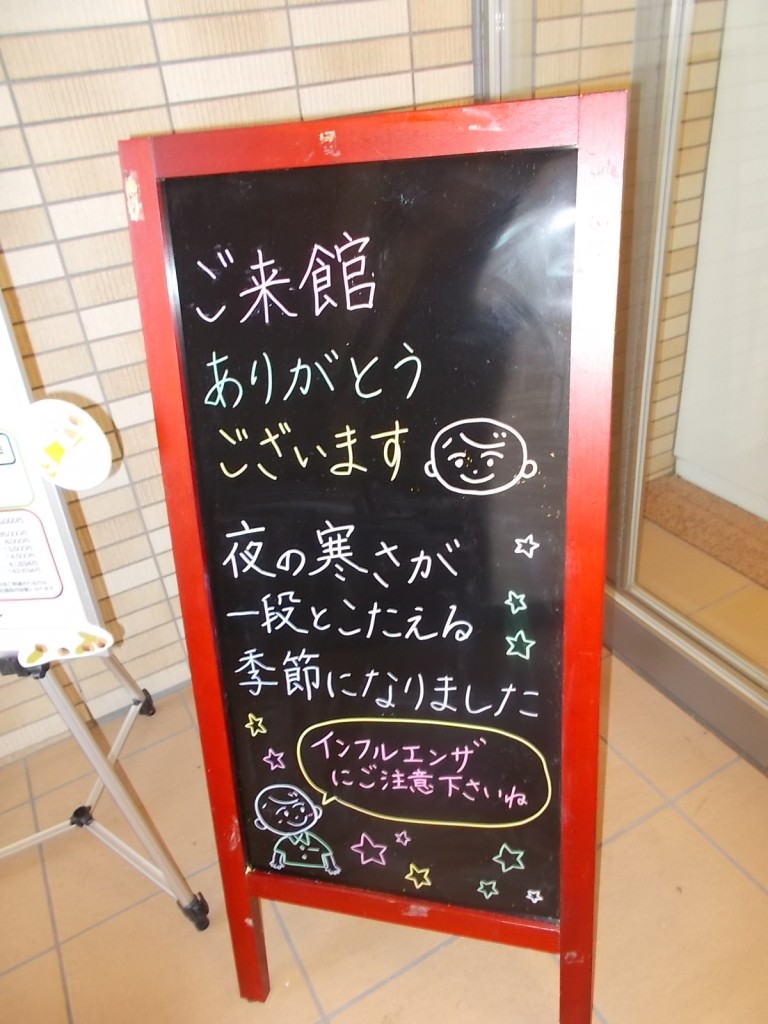 ご来館
ありがとう
ございます
夜の寒さが
一段とこたえる
季節になりました
インフルエンザ
にご注意下さいね